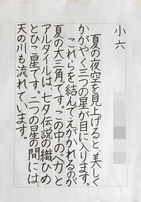 小六
夏の夜空を見上げると、美しく
かがやく三つの星が目に入ります。
これらを結んでえがかれるのが
夏の大三角です。この中の一方の
アルタイルは、七夕伝説の織ひめ
とひこ星です。二つの星の間には、
天の川も流れています。